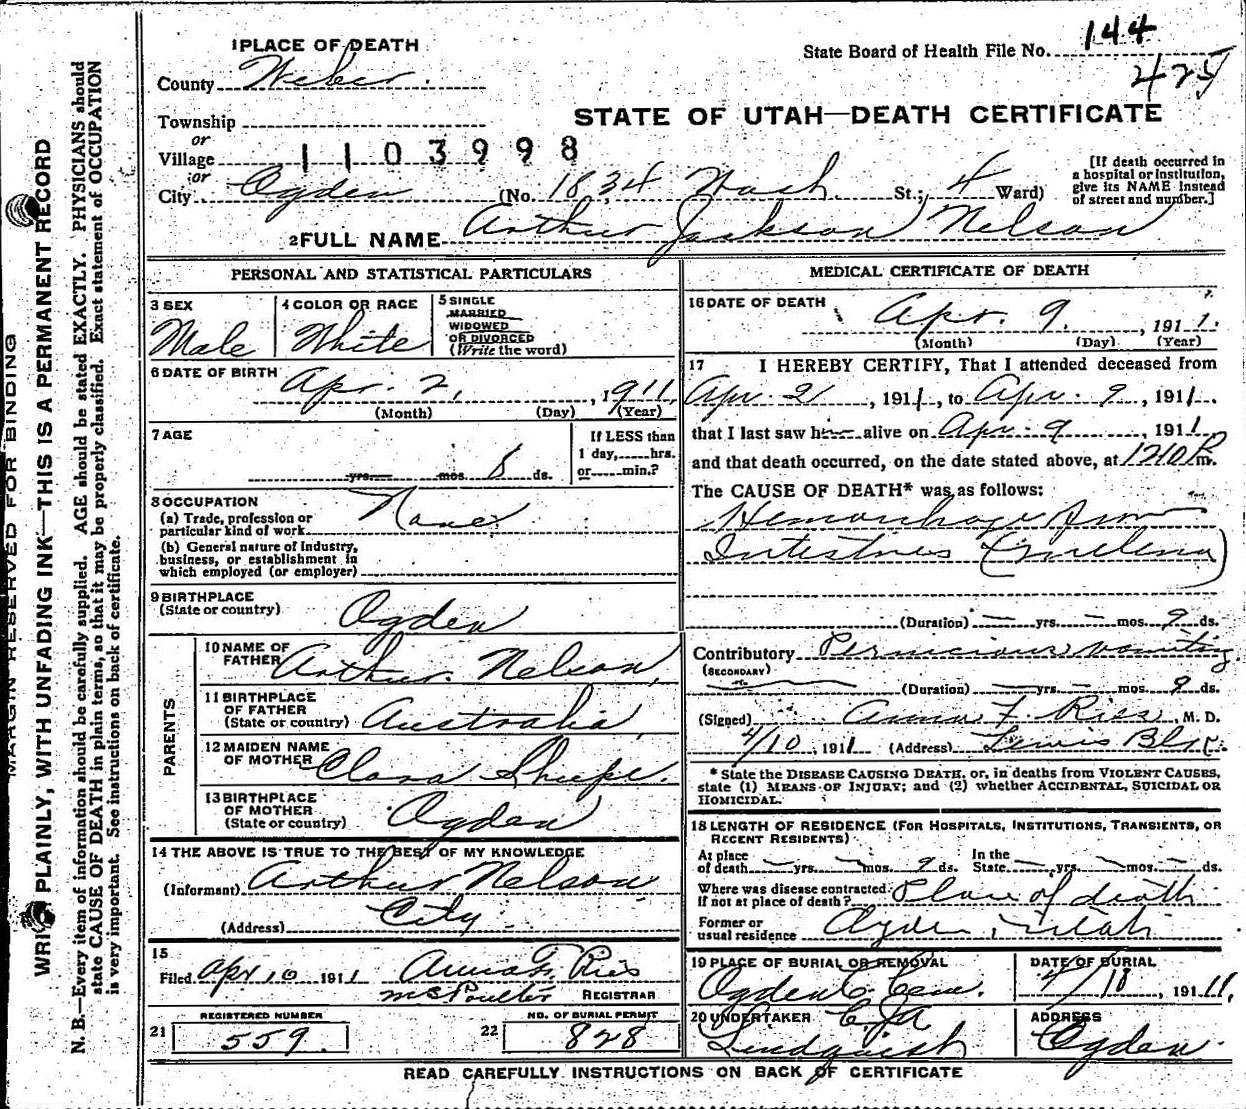 1 PLACE OF DEATH
State Board of Health File No. 144
425
County Weber.
STATE OF UTAH—DEATH CERTIFICATE
Township
or
Village 1103998
or
City Ogden (No. 1834 Wash. St.; 4 Ward)
[If death occurred in
a hospital or institution,
give its NAME instead
of street and number.]
2 FULL NAME Arthur Jackson Nelson
PERSONAL AND STATISTICAL PARTICULARS
3 SEX
Male
4 COLOR OR RACE
White
5 SINGLE
MARRIED
WIDOWED
OR DIVORCED
(Write the word)
6 DATE OF BIRTH
Apr. 2, 1911.
(Month) (Day) (Year)
7 AGE
yrs. mos. 8 ds.
If LESS than
1 day, hrs.
or min.?
8 OCCUPATION
(a) Trade, profession or
particular kind of work None
(b) General nature of industry,
business, or establishment in
which employed (or employer)
9 BIRTHPLACE
(State or country) Ogden
PARENTS
10 NAME OF
FATHER Arthur Nelson,
11 BIRTHPLACE
OF FATHER
(State or country) Australia,
12 MAIDEN NAME
OF MOTHER Clara
13 BIRTHPLACE
OF MOTHER
(State or country) Ogden
14 THE ABOVE IS TRUE TO THE BEST OF MY KNOWLEDGE
(Informant) Arthur Nelson
(Address) City
15
Filed Apr 10 1911 Anna F. Ries
McPoulter REGISTRAR
REGISTERED NUMBER
21 559.
NO. OF BURIAL PERMIT
22 828
MEDICAL CERTIFICATE OF DEATH
16 DATE OF DEATH
Apr. 9. , 1911.
(Month) (Day) (Year)
17 I HEREBY CERTIFY, That I attended deceased from
Apr 2 , 1911, to Apr. 9 , 1911.
that I last saw h alive on Apr. 9 , 1911
and that death occurred, on the date stated above, at 1210 P m.
The CAUSE OF DEATH* was as follows:
Hemorrhage from
Intestines (melena)
(Duration) — yrs. — mos. 9 ds.
Contributory Pernicious vomiting
(SECONDARY)
(Duration) — yrs. — mos. 9 ds.
(Signed) Anna F. Ries, M. D.
4/10, 1911 (Address) Lewis Blk.
* State the DISEASE CAUSING DEATH, or, in deaths from VIOLENT CAUSES,
state (1) MEANS OF INJURY; and (2) whether ACCIDENTAL, SUICIDAL OR
HOMICIDAL.
18 LENGTH OF RESIDENCE (FOR HOSPITALS, INSTITUTIONS, TRANSIENTS, OR
RECENT RESIDENTS)
At place
of death — yrs. — mos. 9 ds.
In the
State — yrs. — mos. — ds.
Where was disease contracted.
If not at place of death? Place of death
Former or
usual residence Ogden, Utah
19 PLACE OF BURIAL OR REMOVAL
Ogden C. Cem.
DATE OF BURIAL
4/10, 1911,
20 UNDERTAKER
Lindquist
ADDRESS
Ogden
READ CAREFULLY INSTRUCTIONS ON BACK OF CERTIFICATE
MARGIN RESERVED FOR BINDING
WRITE PLAINLY, WITH UNFADING INK—THIS IS A PERMANENT RECORD
N. B.—Every item of information should be carefully supplied. AGE should be stated EXACTLY. PHYSICIANS should
state CAUSE OF DEATH in plain terms, so that it may be properly classified. Exact statement of OCCUPATION
is very important. See instructions on back of certificate.